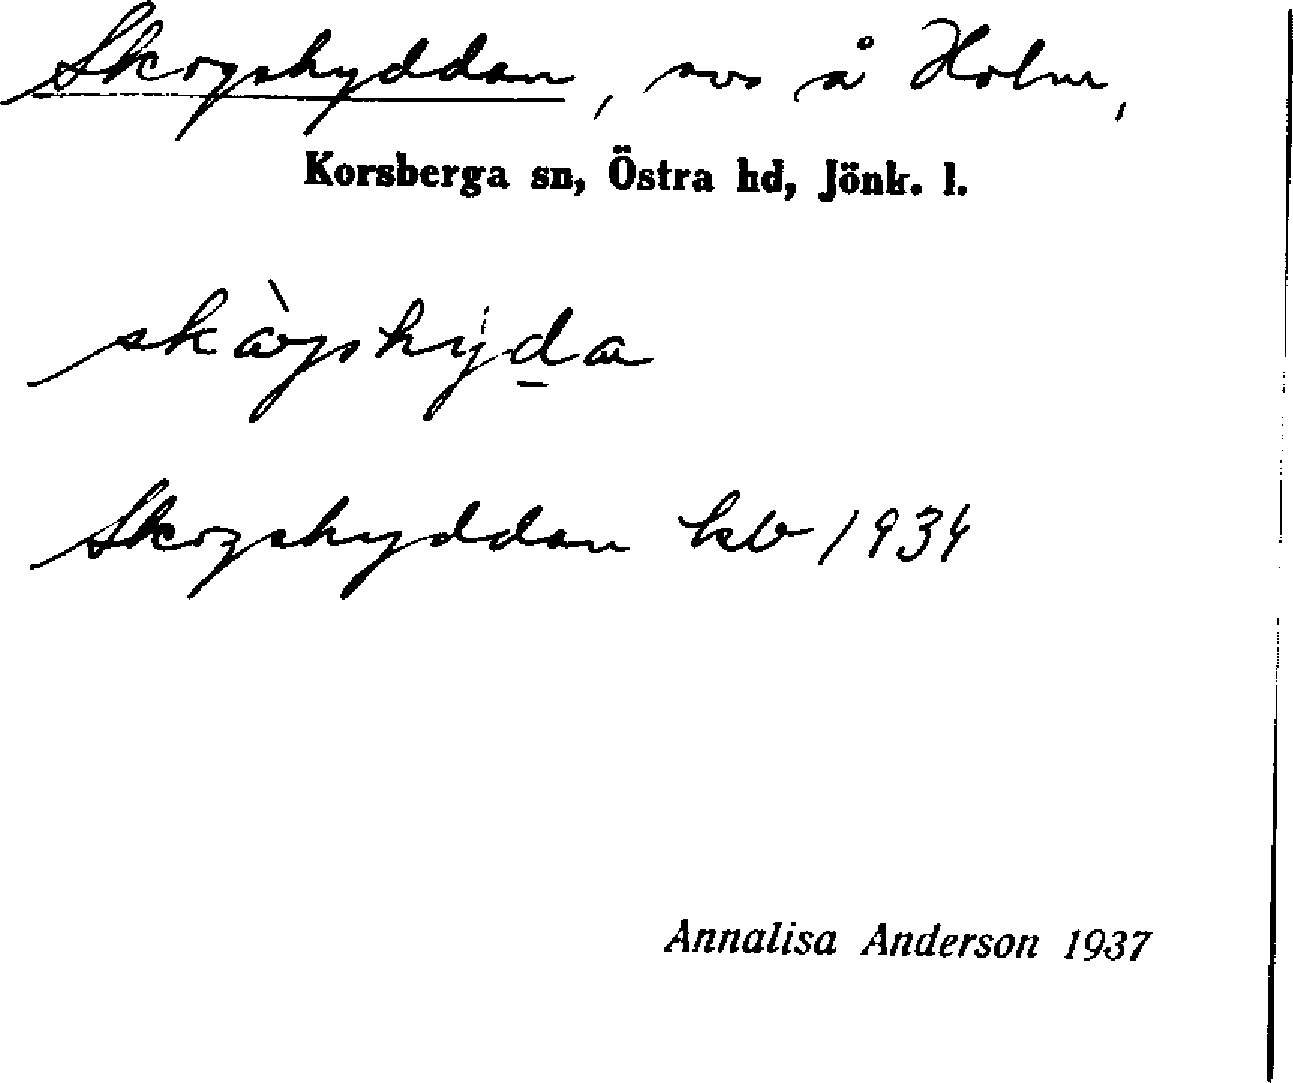 Skogshyddan, avs å Holm,
Korsberga sn, Östra hd, Jönk. l.
skògshyda
Skogshyddan kb 1934
Annalisa Anderson 1937